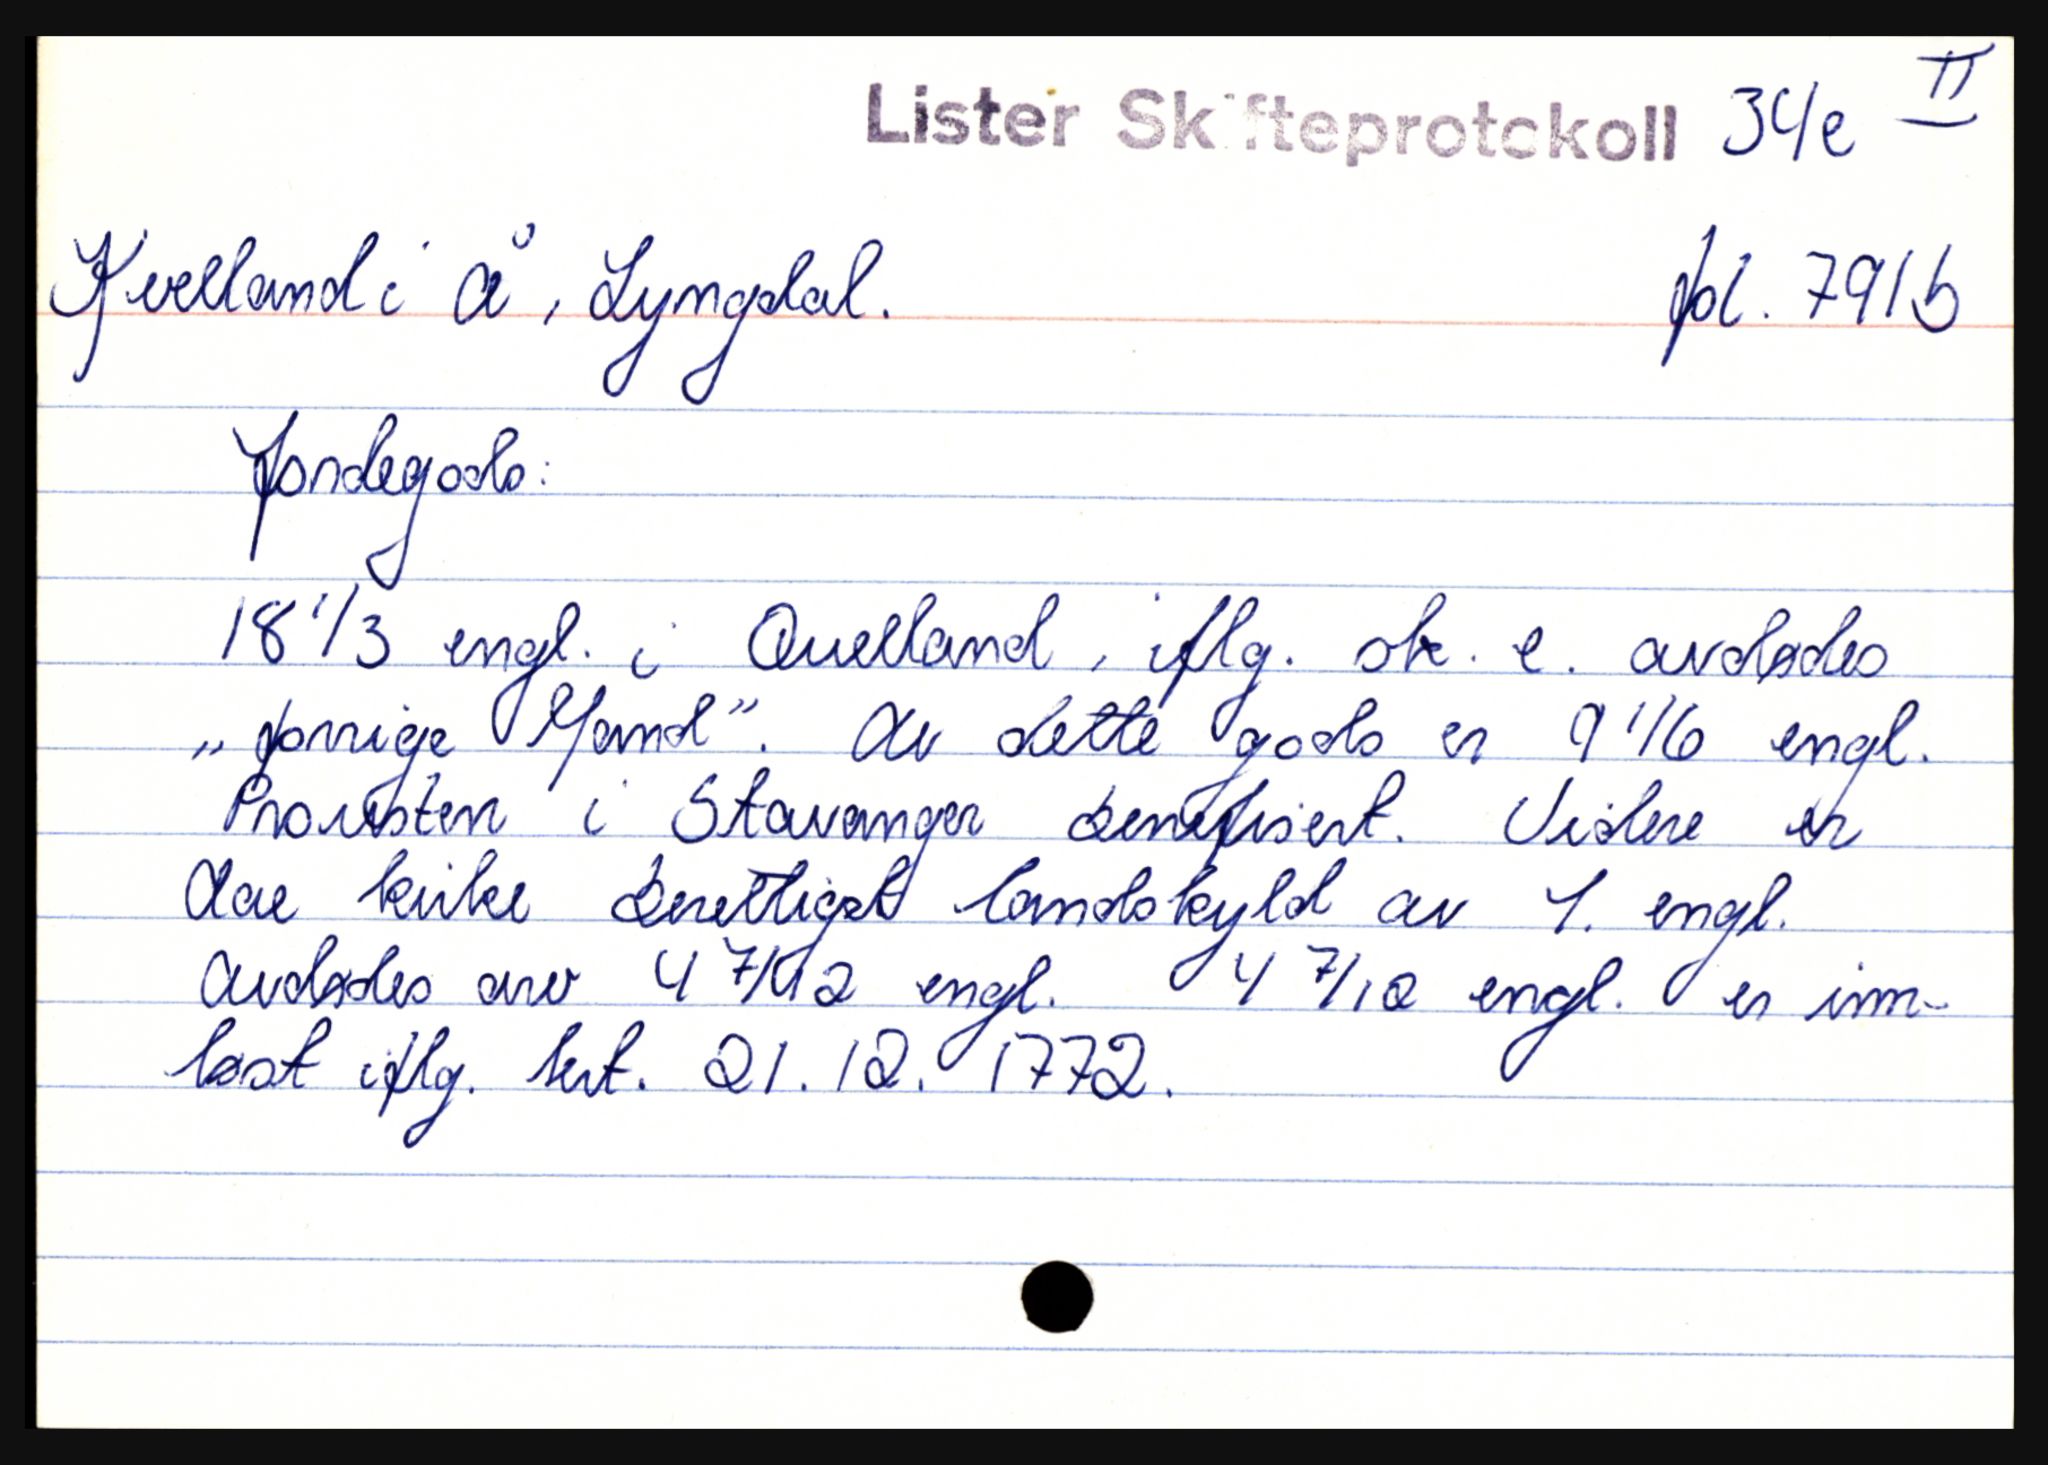 Lister Skifteprotokoll 34/e II
Kvelland i Å, Lyngdal. fol. 791b
Jordegods:
18 1/3 engl. i Quelland, iflg. sk. e. avdødes
„forrige Mand”. Av dette gods er 9 1/6 engl.
Provsten i Stavanger benefisert. Videre er
Aae kirke berettiget landskyld av 1. engl.
Avdødes arv 4 7/12 engl. 4 7/12 engl. er inn-
løst iflg. kvt. 21.12.1772.